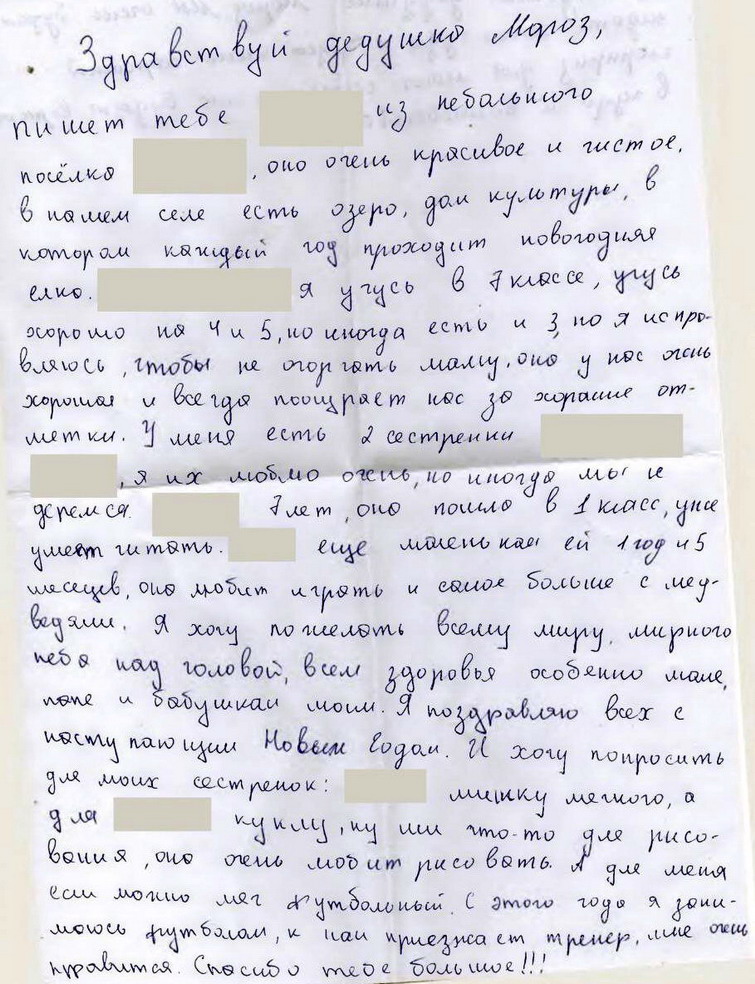 Здравствуй дедушка Мороз,
пишет тебе из небольшого
посёлка , оно очень красивое и чистое,
в нашем селе есть озеро, дом культуры, в
котором каждый год проходит новогодняя
елка. я учусь в 7 классе, учусь
хорошо на 4 и 5, но иногда есть и 3, но я испра-
вляюсь, чтобы не огорчать маму, она у нас очень
хорошая и всегда поощряет нас за хорошие от-
метки. У меня есть 2 сестренки
, я их люблю очень, но иногда мы и
деремся. 7 лет, она пошла в 1 класс, уже
умеет читать. еще маленькая ей 1 год и 5
месецев, она любит играть и самое больше с мед-
ведями. Я хочу пожелать всему миру, мирного
неба над головой, всем здоровья особенно маме,
папе и бабушкам моим. Я поздравляю всех с
наступающим Новым Годом. И хочу попросить
для моих сестренок: мишку мягкого, а
для куклу, ну или что-то для рисо-
вания, она очень любит рисовать. А для меня
если можно мяч футбольный. С этого года я зани-
маюсь футболом, к нам приезжает тренер, мне очень
нравится. Спасибо тебе большое!!!